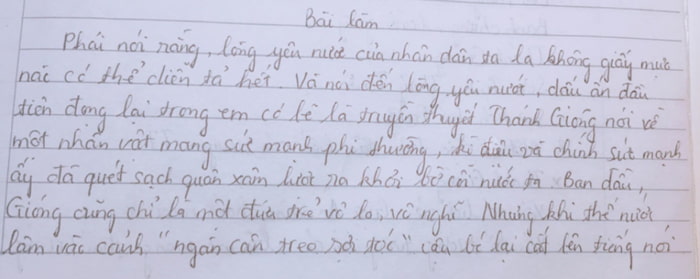 Bài làm
Phải nói rằng, lòng yêu nước của nhân dân ta là không giấy mực
nào có thể diễn tả hết. Và nói đến lòng yêu nước, dấu ấn đầu
tiên đọng lại trong em có lẽ là truyền thuyết Thánh Gióng nói về
một nhân vật mang sức mạnh phi thường, kì diệu và chính sức mạnh
ấy đã quét sạch quân xâm lược ra khỏi bờ cõi nước ta. Ban đầu,
Gióng cũng chỉ là một đứa trẻ vô lo, vô nghĩ. Nhưng khi thế nước
lâm vào cảnh "ngàn cân treo sợi tóc" cậu bé lại cất lên tiếng nói